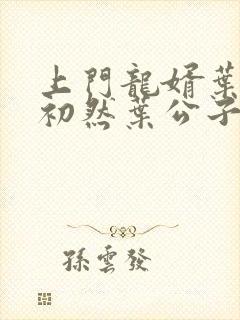 上門龍婿葉
初然葉公子
孫雲發